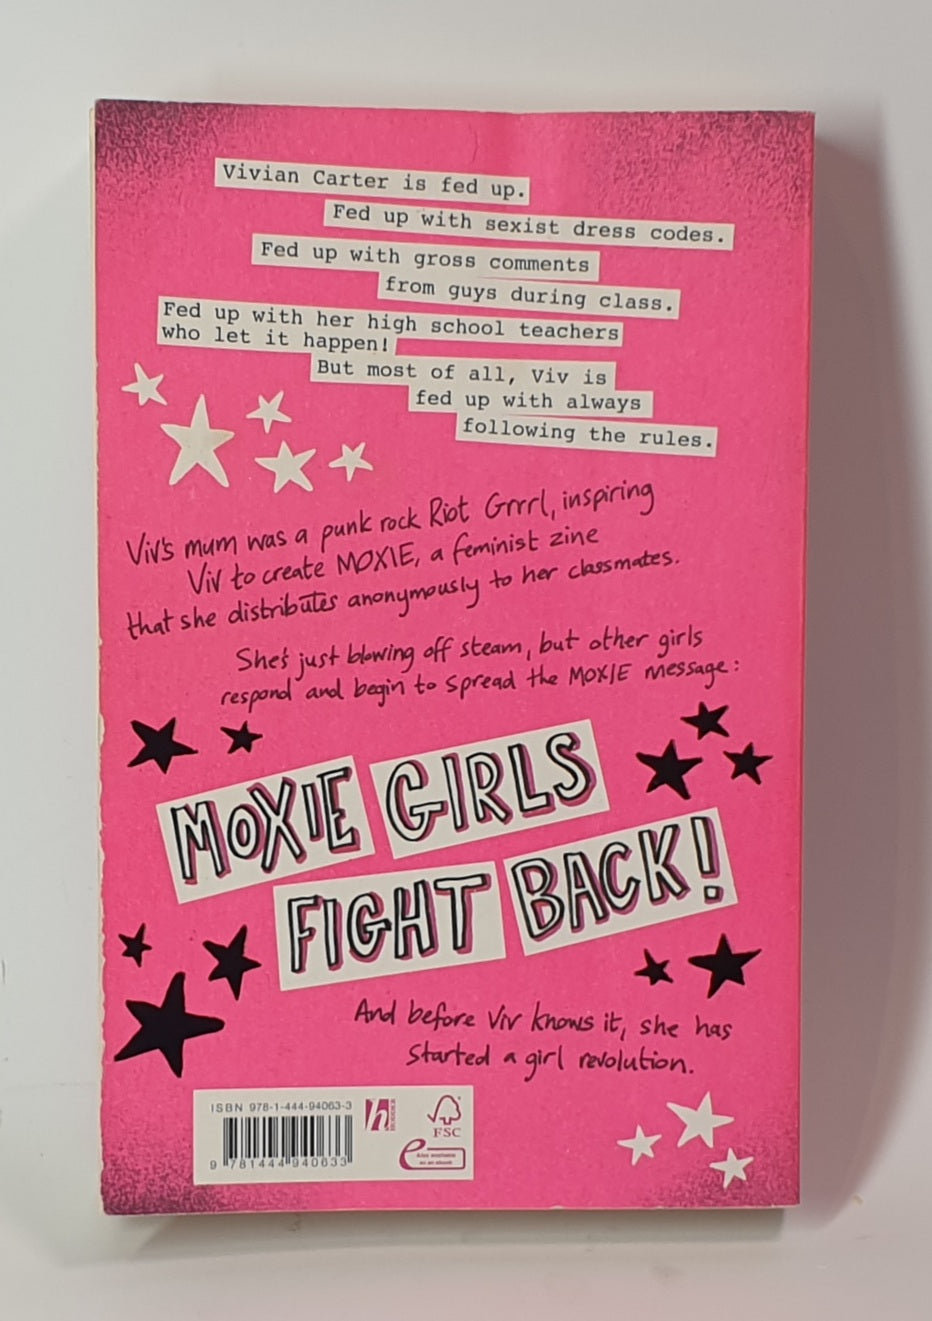 Vivian Carter is fed up.
Fed up with sexist dress codes.
Fed up with gross comments
from guys during class.
Fed up with her high school teachers
who let it happen!
But most of all, Viv is
fed up with always
following the rules.
Viv's mum was a punk rock Riot Grrrl, inspiring
Viv to create MOXIE, a feminist zine
that she distributes anonymously to her classmates.
She's just blowing off steam, but other girls
respond and begin to spread the MOXIE message:
MOXIE GIRLS
FIGHT BACK!
And before Viv knows it, she has
started a girl revolution.
ISBN 978-1-444-94063-3
9 781444 940633
h
FSC
e
Also available
as an ebook